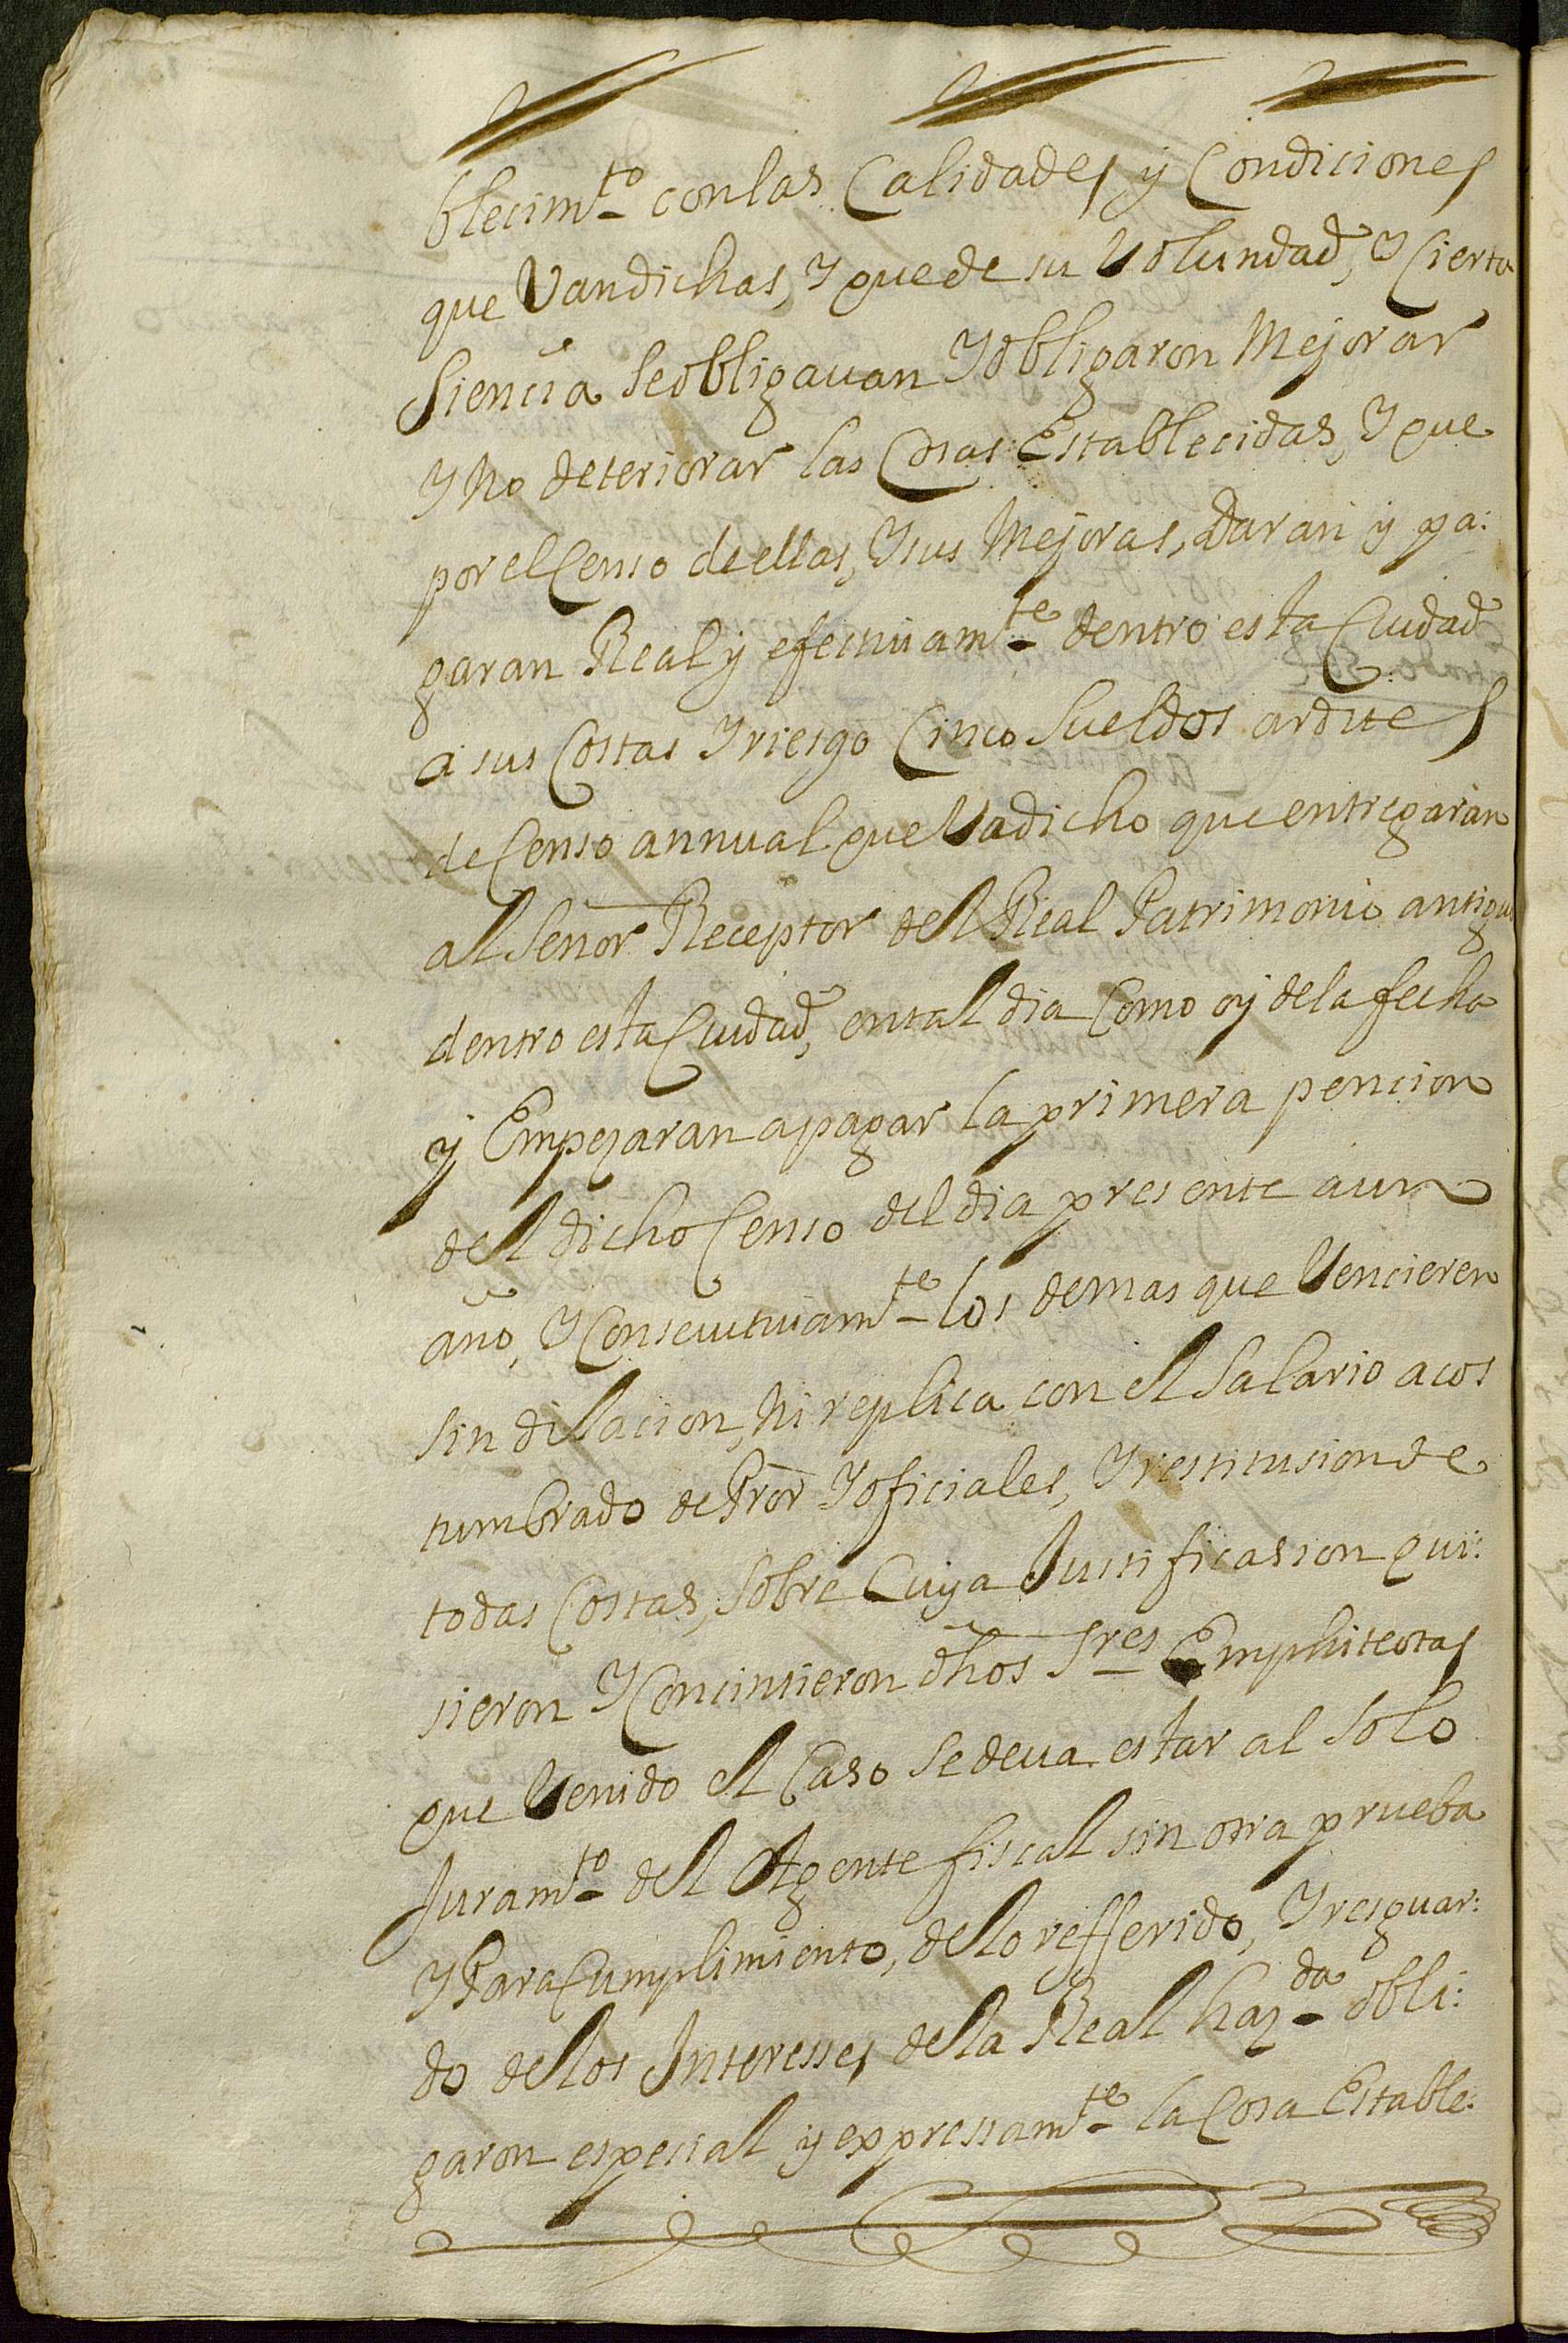 blecimto con las Calidades y Condiciones
que Van dichas, Y que de su Volundad, Y Cierta
Siencia Se obligauan Y obligaron Mejorar
Y No deteriorar las Cosas Establecidas, Y que
por el Censo de ellas, Y sus Mejoras, Daran y pa:
garan Real y efectiuamte dentro esta Ciudad
a sus Costas Y riesgo Cinco Sueldos ardites
de Censo annual que Va dicho que entregaran
al Señor Receptor del Real Patrimonio antiguo
dentro esta Ciudad, en tal dia Como oy de la fecha
y Empezaran a pagar la primera pencion
del dicho Censo del dia presente a un
año, Y Consecutiuamte los demas que Vencieren
sin dilacion, Ni replica con el Salario acos
tumbrado de Pror Y oficiales, Y restitusion de
todas Costas, Sobre Cuya Justificasion qui:
sieron Y Concintieron dhos Sres Emphiteotas
que Venido el Caso se deua estar al Solo
Juramto del Agente fiscal sin otra prueba
Y Para Cumplimiento, de lo refferido, Y resguar:
do de los Interesses de la Real hazda obli:
garon especial y expressamte la Cosa Estable: